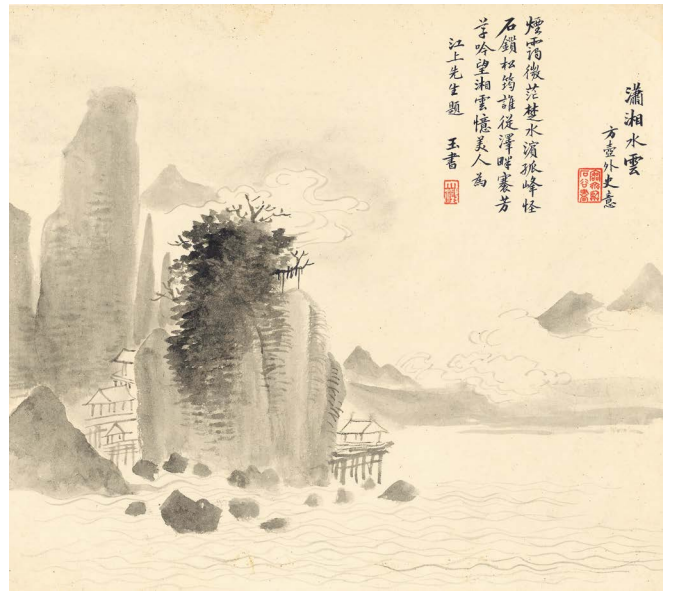 瀟湘水雲
方壺外史意
煙靄微茫楚水濱孤峰怪
石鎖松筠誰從澤畔搴芳
芓吟望湘雲憶美人為
江上先生題 玉書